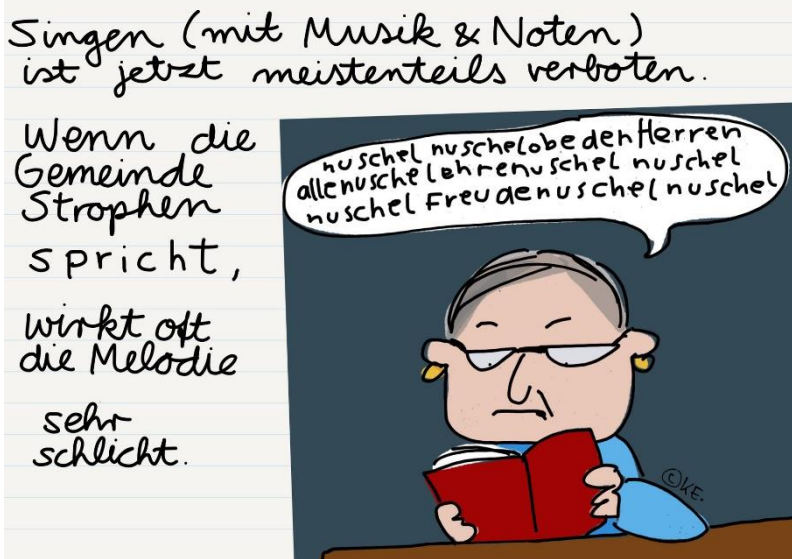 Singen (mit Musik & Noten)
ist jetzt meistenteils verboten.
Wenn die
Gemeinde
Strophen
spricht,
wirkt oft
die Melodie
sehr
schlicht.
nuschel nuschelobe den Herren
allenuschelehrenuschel nuschel
nuschel Freudenuschel nuschel
©KE.